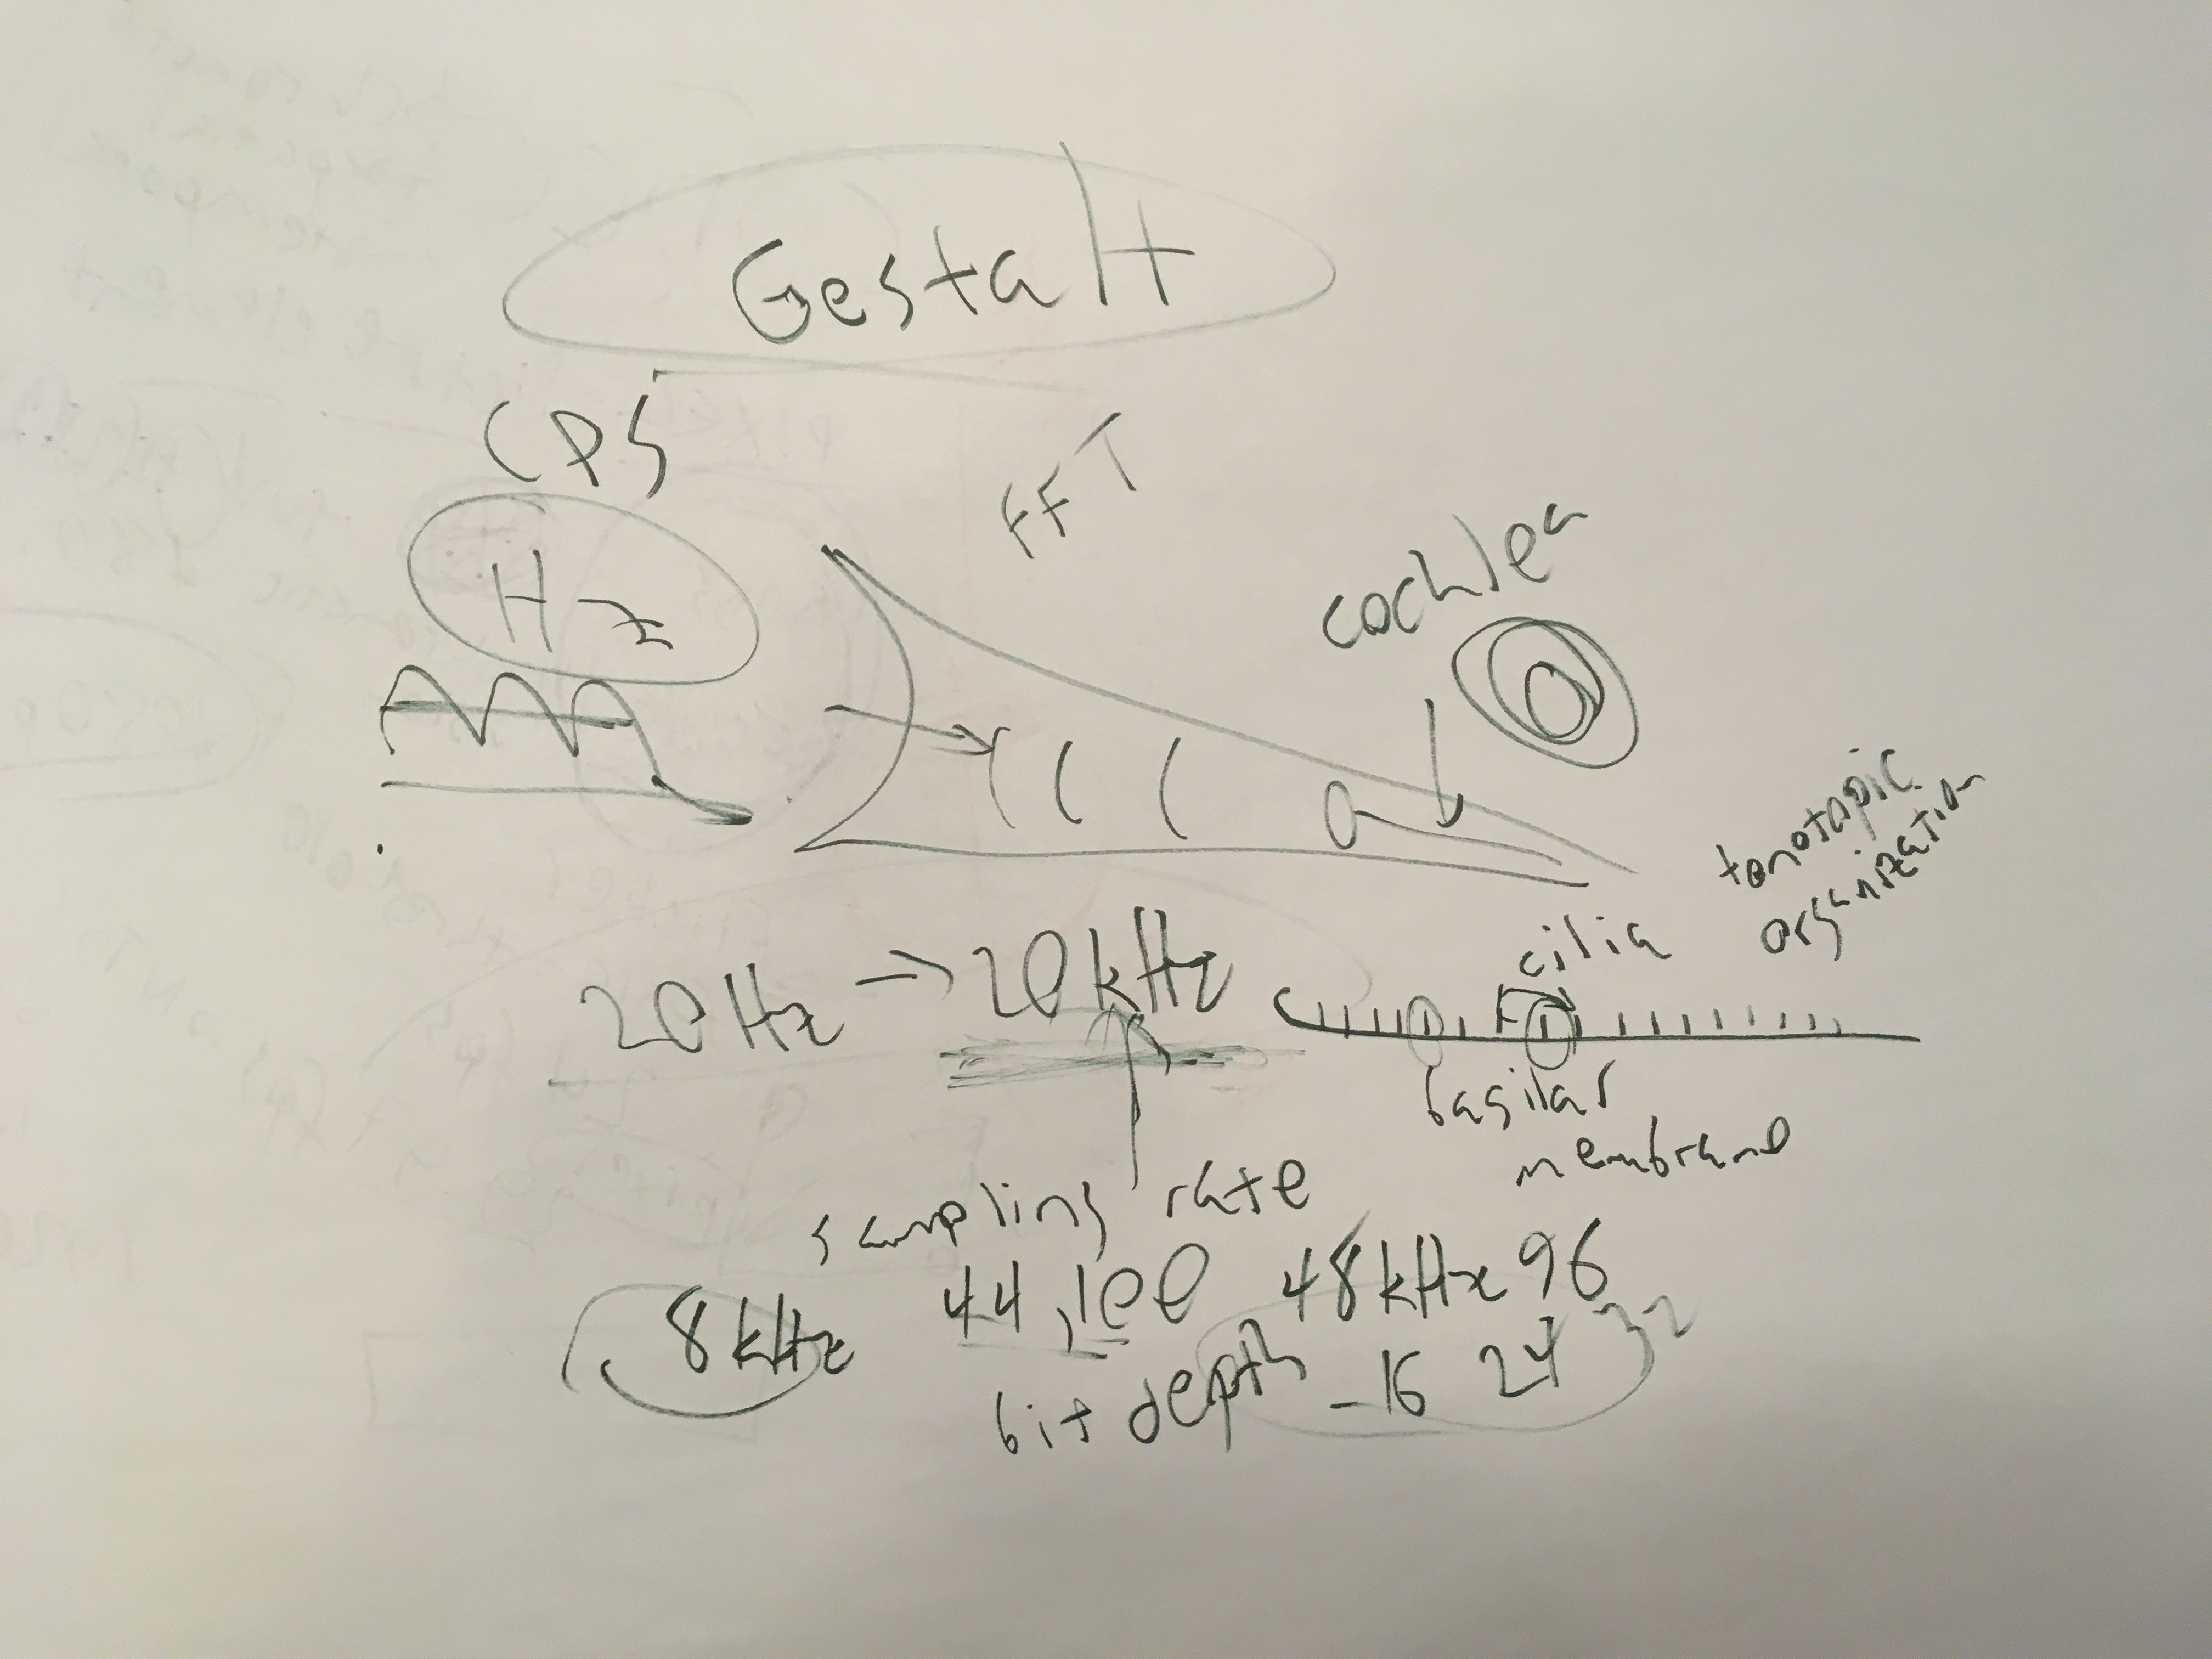 Gestalt
CPS
FFT
Hz
cochlea
tonotopic
organization
cilia
20Hz → 20kHz
basilar
membrane
sampling rate
8kHz 44,100 48kHz 96
bit depth - 16 24 32